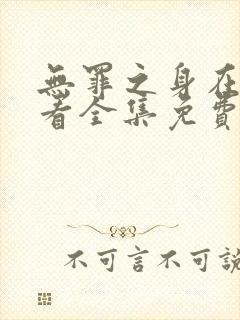 無罪之身在
看全集免費
不可言不可說